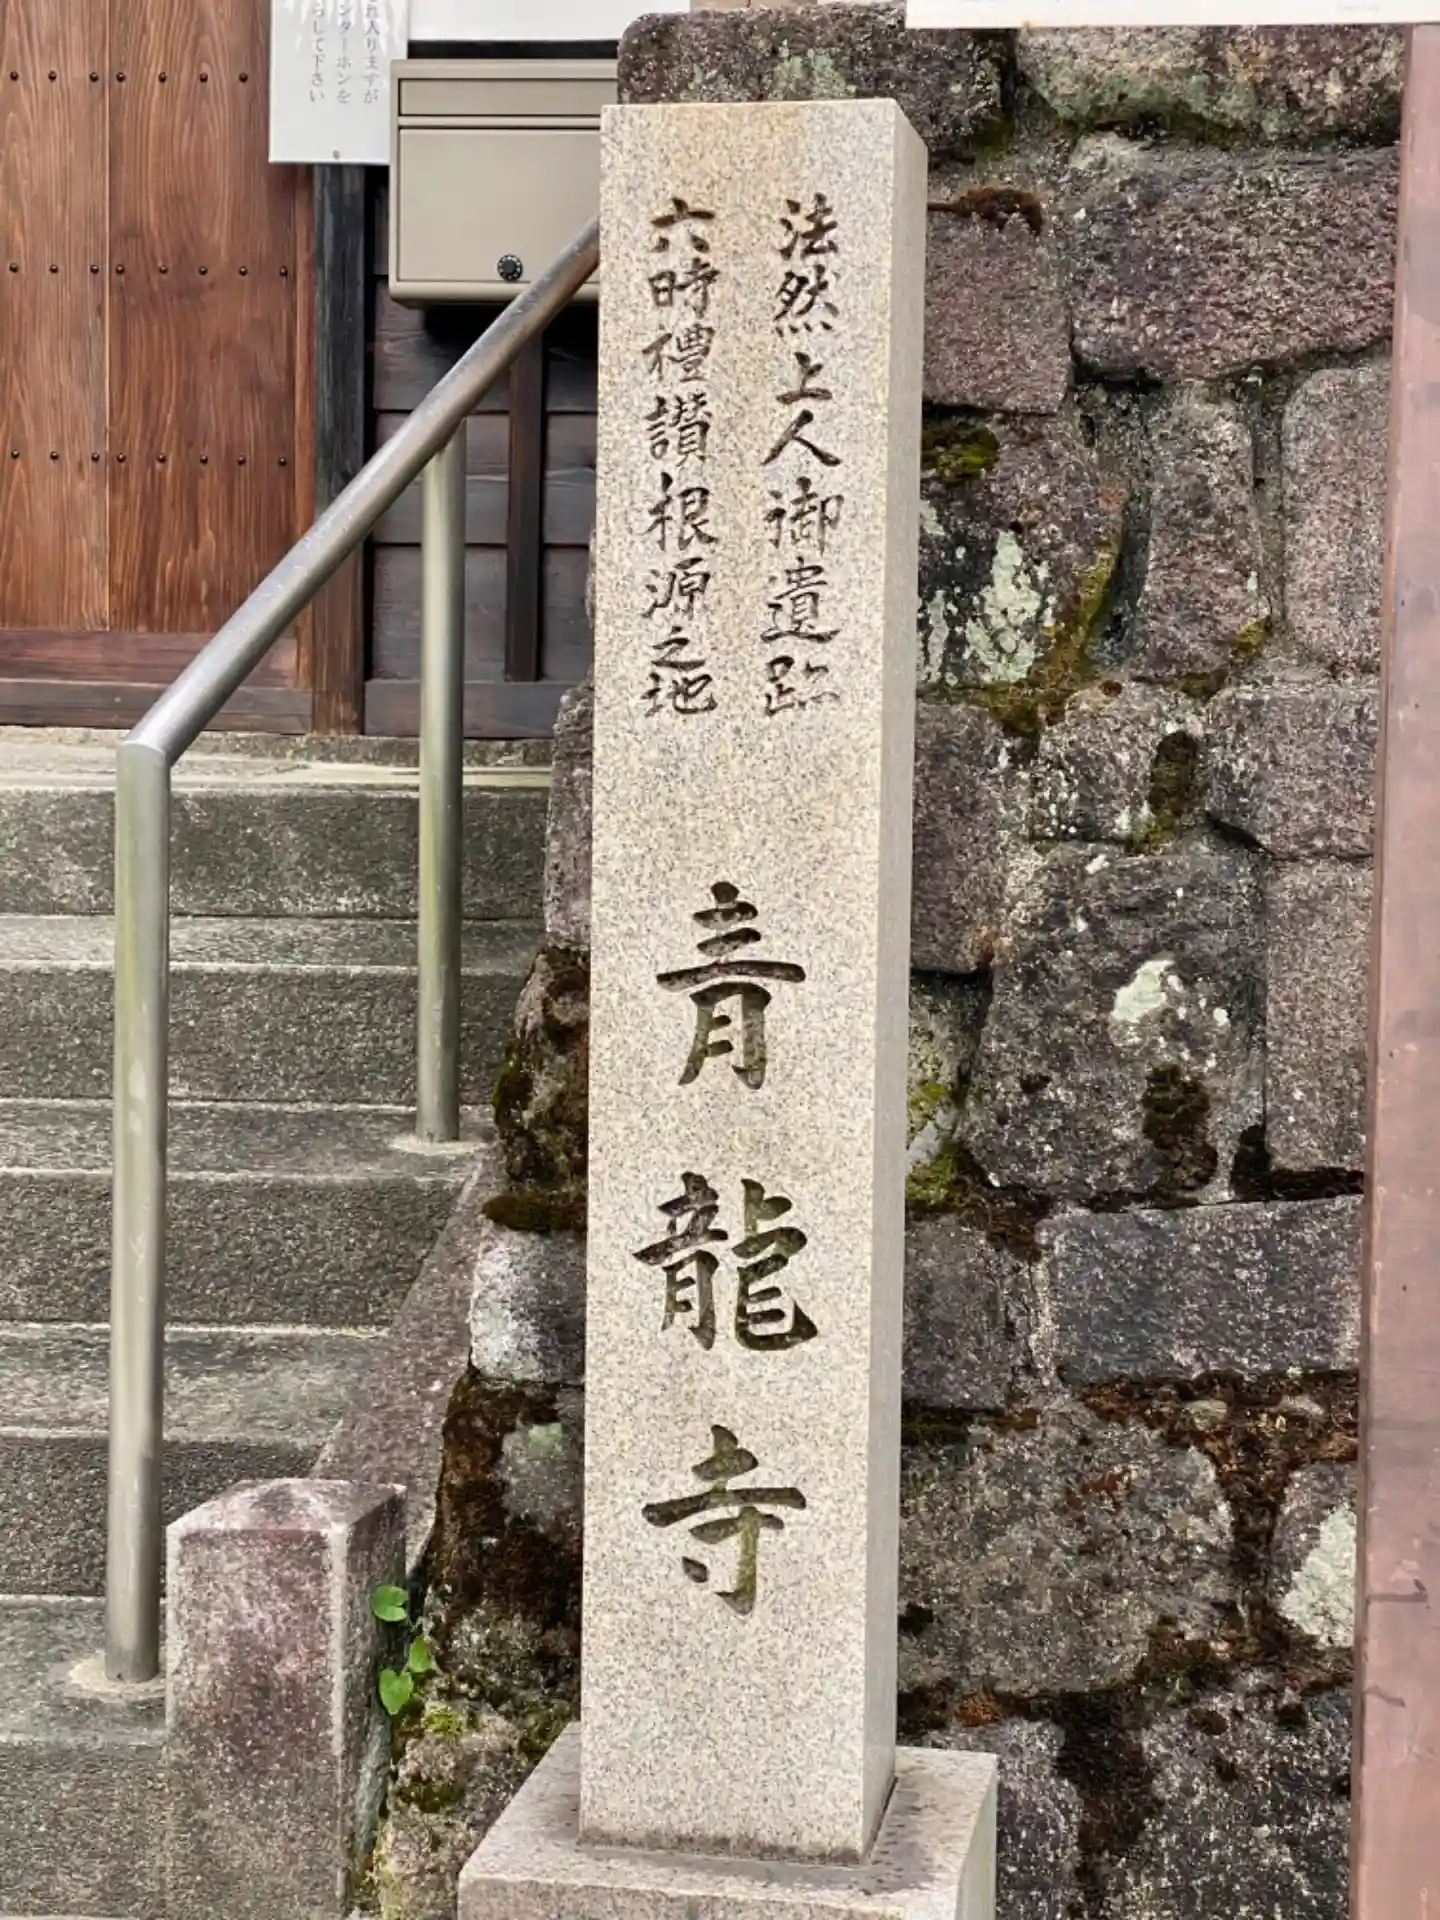 法然上人御遺跡
六時禮讃根源之地
青龍寺
れ入りますが
ンターホンを
らして下さい